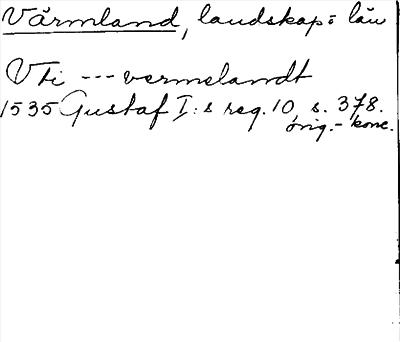 Värmland, landskap = län
Vti --- vermelandt
1535 Gustaf I:s reg. 10, s. 378.
orig.-konc.